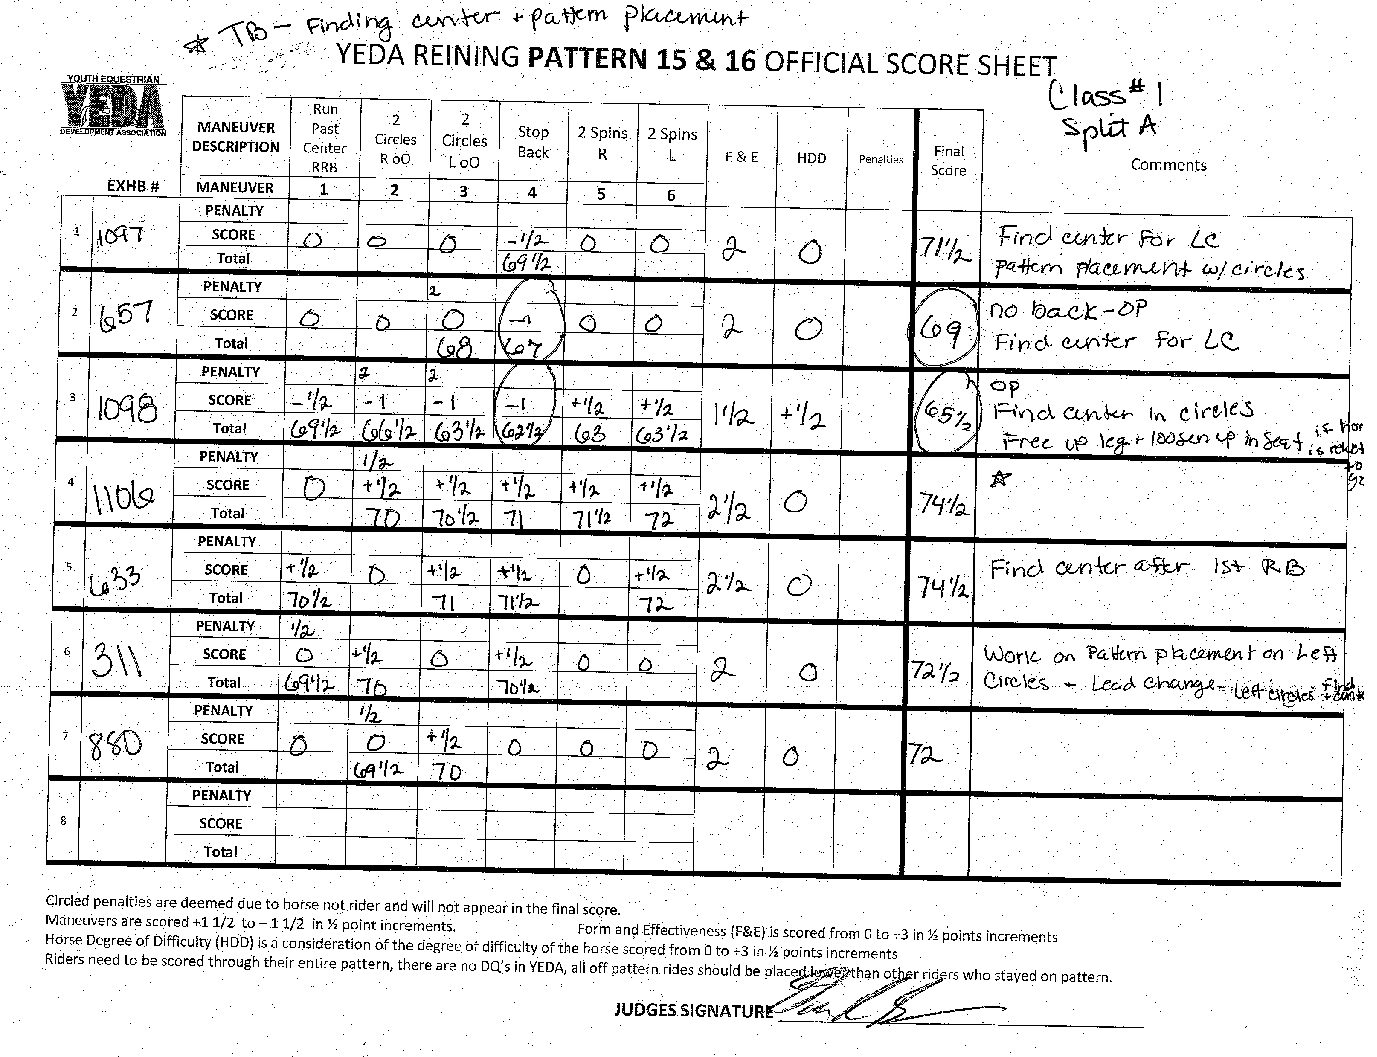 ☆ TB - Finding center + pattern placement
YEDA REINING PATTERN 15 & 16 OFFICIAL SCORE SHEET
YOUTH EQUESTRIAN
YEDA
DEVELOPMENT ASSOCIATION
Class #1
Split A
MANEUVER DESCRIPTION Run Past Center RRB 2 Circles RoO 2 Circles LoO Stop Back 2 Spins R 2 Spins L F & E HDD Penalties Final Score Comments
EXHB.# MANEUVER 1 2 3 4 5 6
1 1097
PENALTY
SCORE 0 0 0 -1/2 0 0 2 0 71 1/2 Find center for LC
Total 69 1/2 pattern placement w/circles
2 657
PENALTY 2
SCORE 0 0 0 -1 0 0 2 0 69 no back-OP
Total 68 67 Find center for LC
3 1098
PENALTY 2 2 OP
SCORE -1/2 -1 -1 -1 +1/2 +1/2 1 1/2 +1/2 65 1/2 Find center in circles
Total 69 1/2 66 1/2 63 1/2 62 1/2 63 63 1/2 Free up leg + loosen up in seat
4 1106
PENALTY 1/2
SCORE 0 +1/2 +1/2 +1/2 +1/2 +1/2 2 1/2 0 74 1/2 ☆
Total 70 70 1/2 71 71 1/2 72
5 633
PENALTY
SCORE +1/2 0 +1/2 +1/2 0 +1/2 2 1/2 0 74 1/2 Find center after 1st RB
Total 70 1/2 71 71 1/2 72
6 311
PENALTY 1/2
SCORE 0 +1/2 0 +1/2 0 0 2 0 72 1/2 Work on Pattern placement on Left
Total 69 1/2 70 70 1/2 Circles - Lead Change - Left circles
7 880
PENALTY 1/2
SCORE 0 0 +1/2 0 0 0 2 0 72
Total 69 1/2 70
8
PENALTY
SCORE
Total
Circled penalties are deemed due to horse not rider and will not appear in the final score.
Maneuvers are scored +1 1/2 to -1 1/2 in ½ point increments. Form and Effectiveness (F&E) is scored from 0 to +3 in ½ points increments
Horse Degree of Difficulty (HDD) is a consideration of the degree of difficulty of the horse scored from 0 to +3 in ½ points increments
Riders need to be scored through their entire pattern, there are no DQ's in YEDA, all off pattern rides should be placed lower than other riders who stayed on pattern.
JUDGES SIGNATURE